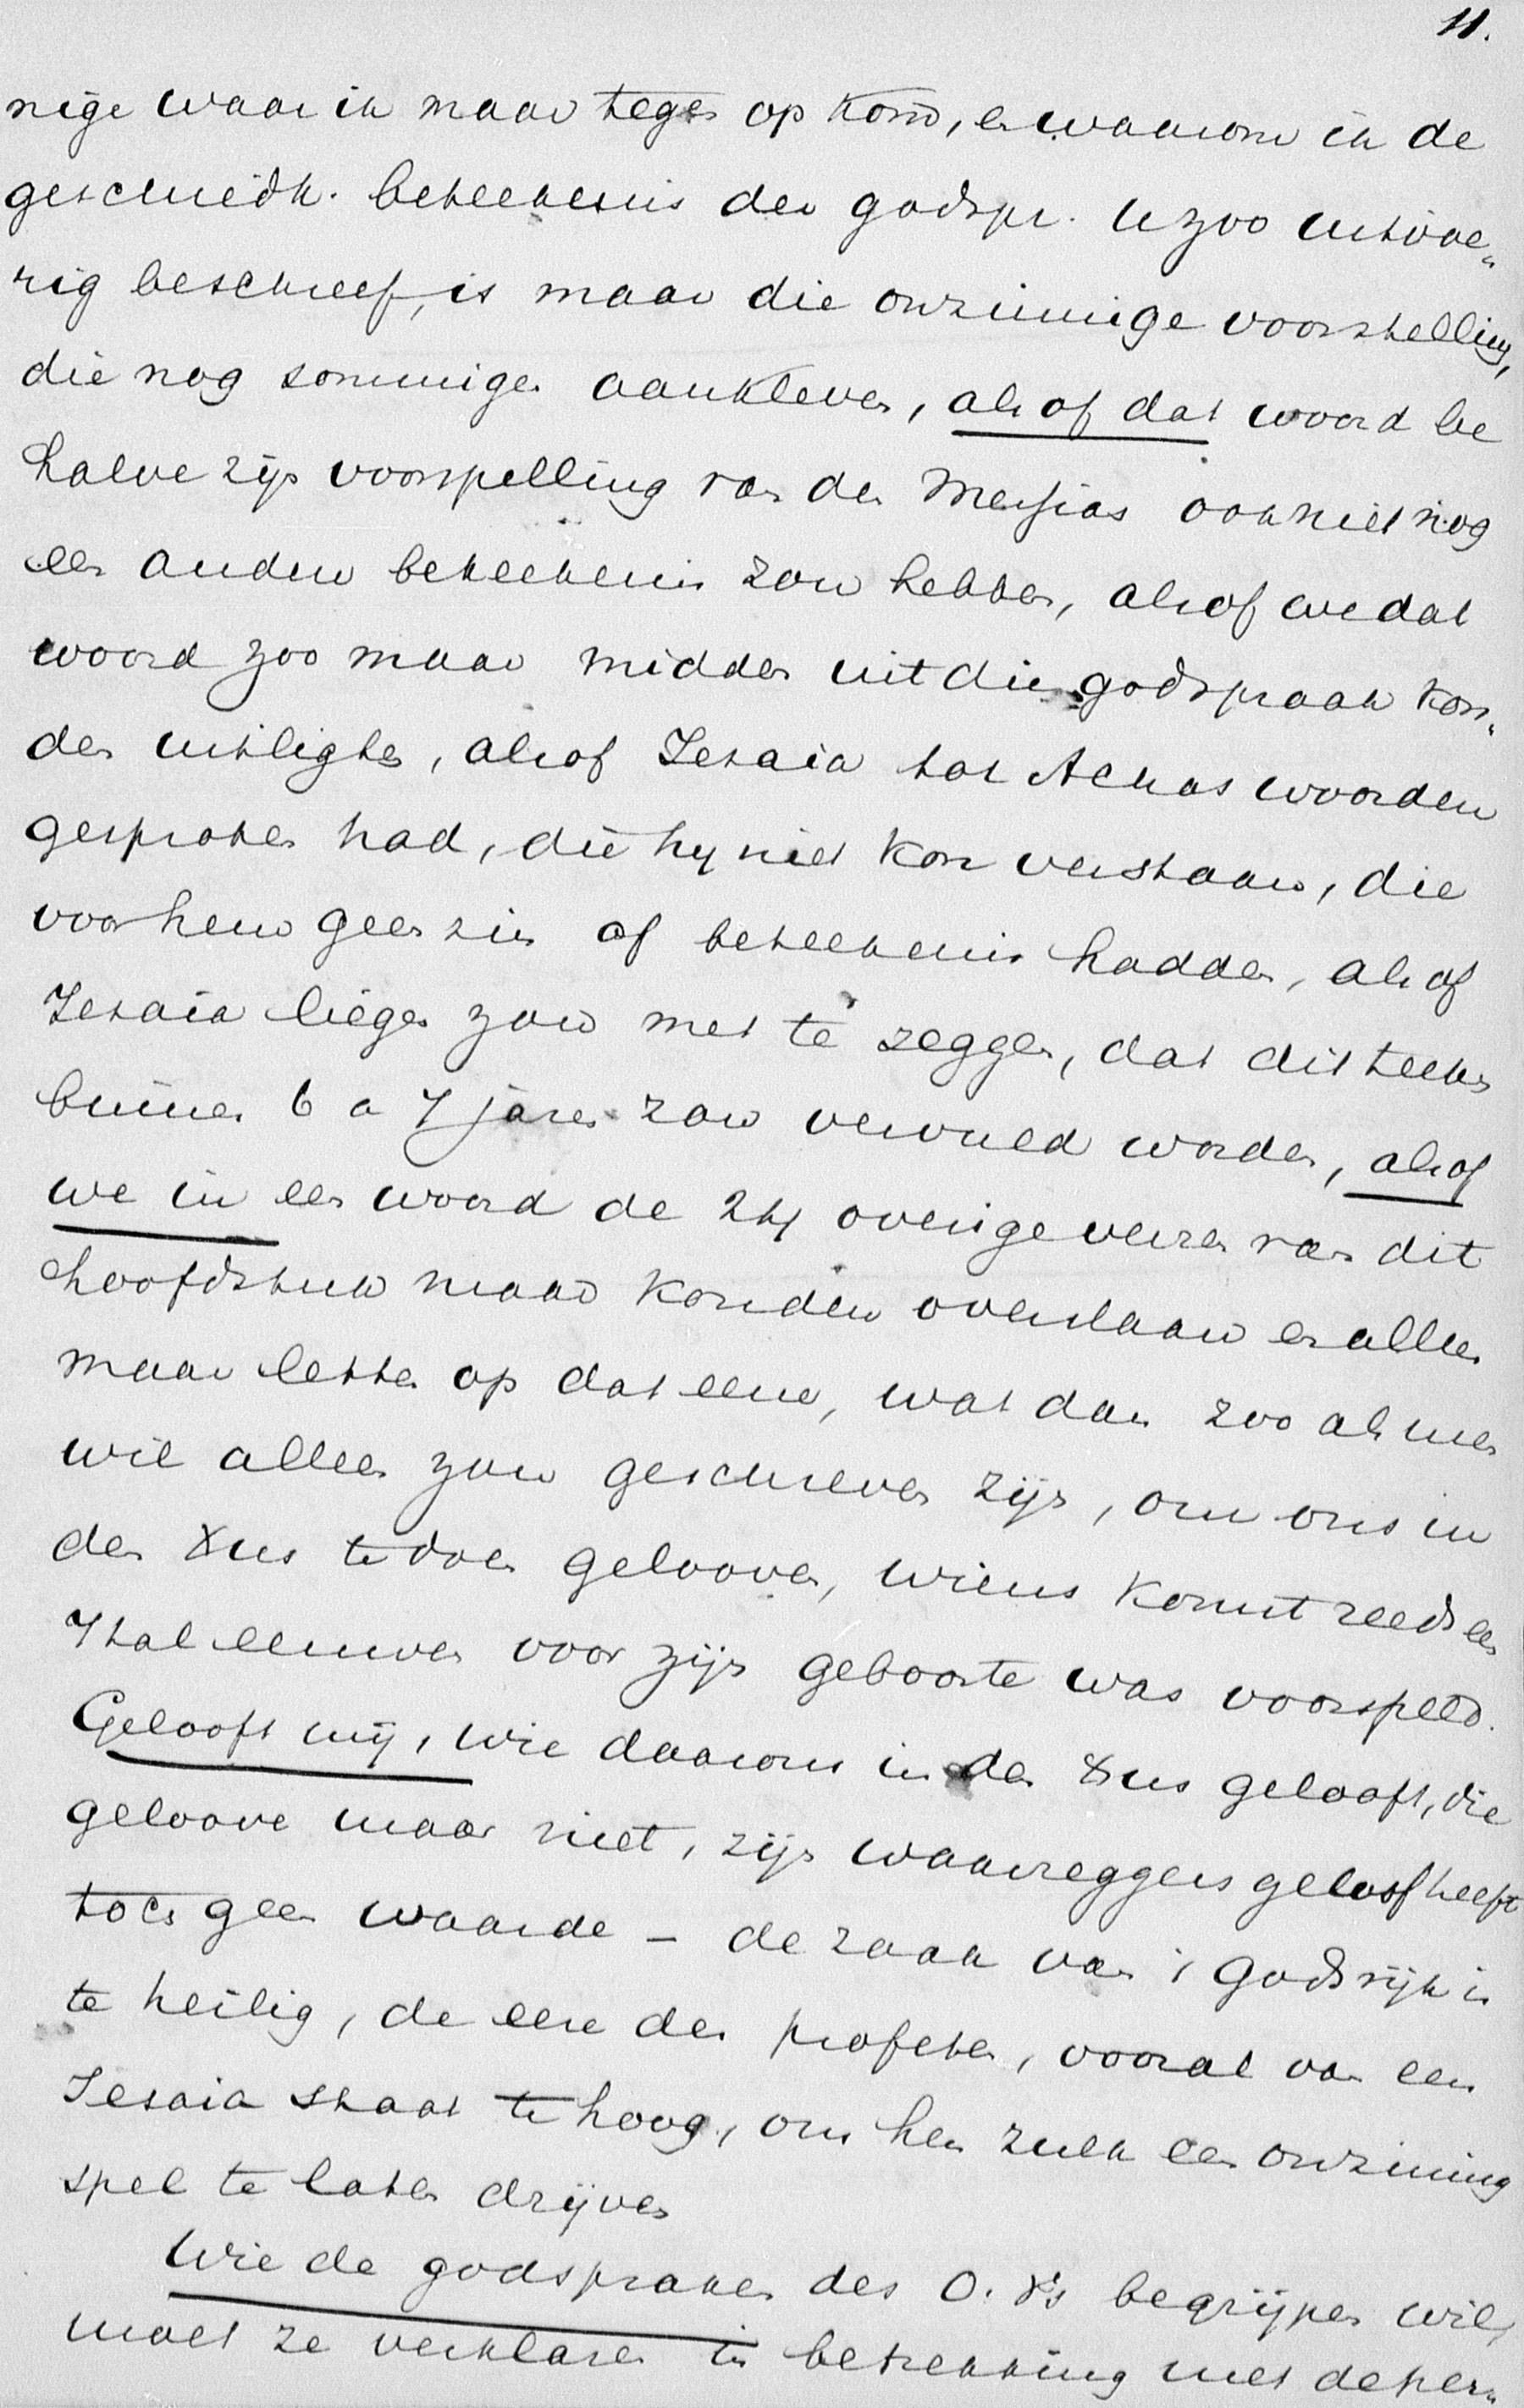 11.
nige waar ik maar tegen op kom, en waarom ik de
geschiedk. beteekenis der godspr. U zoo uitvoe„
rig beschreef, is maar die onzinnige voorstelling,
die nog sommigen aankleven, alsof dat woord be
halve zijn voorspelling van den Messias ook niet nog
een andere beteekenis zou hebben, alsof we dat
woord zoo maar midden uit die godspraak kon„
den uitligten, alsof Jesaia tot Achas woorden
gesproken had, die hy niet kon verstaan, die
voor hem geen zin of beteekenis hadden, alsof
Jesaia liegen zou met te zeggen, dat dit teeken
binnen 6 a 7 jaren zou vervuld worden, alsof
we in een woord de 24 overige verzen van dit
hoofdstuk maar konden overslaan en alleen
maar letten op dat eene, wat dan zoo als men
wil alleen zou geschreven zijn, om ons in
den Xus te doen gelooven, wiens komst reeds een
7tal eeuwen voor zijn geboorte was voorspeld.
Gelooft mij, wie daarom in den Xus gelooft, die
geloove maar niet, zijn waarzeggers geloof heeft
toch geen waarde – de zaak van 's Godsrijk is
te heilig, de eere der profeten, vooral van een
Jesaia staat te hoog, om hen zulk een onzinnig
spel te laten drijven
Wie de godspraken des O. V's begrijpen wil,
moet ze verklaren in betrekking met de per„